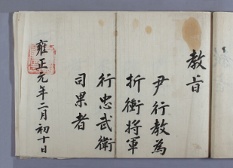 教旨
尹行教為
折衝將軍
行忠武衛
司果者
雍正元年二月初十日